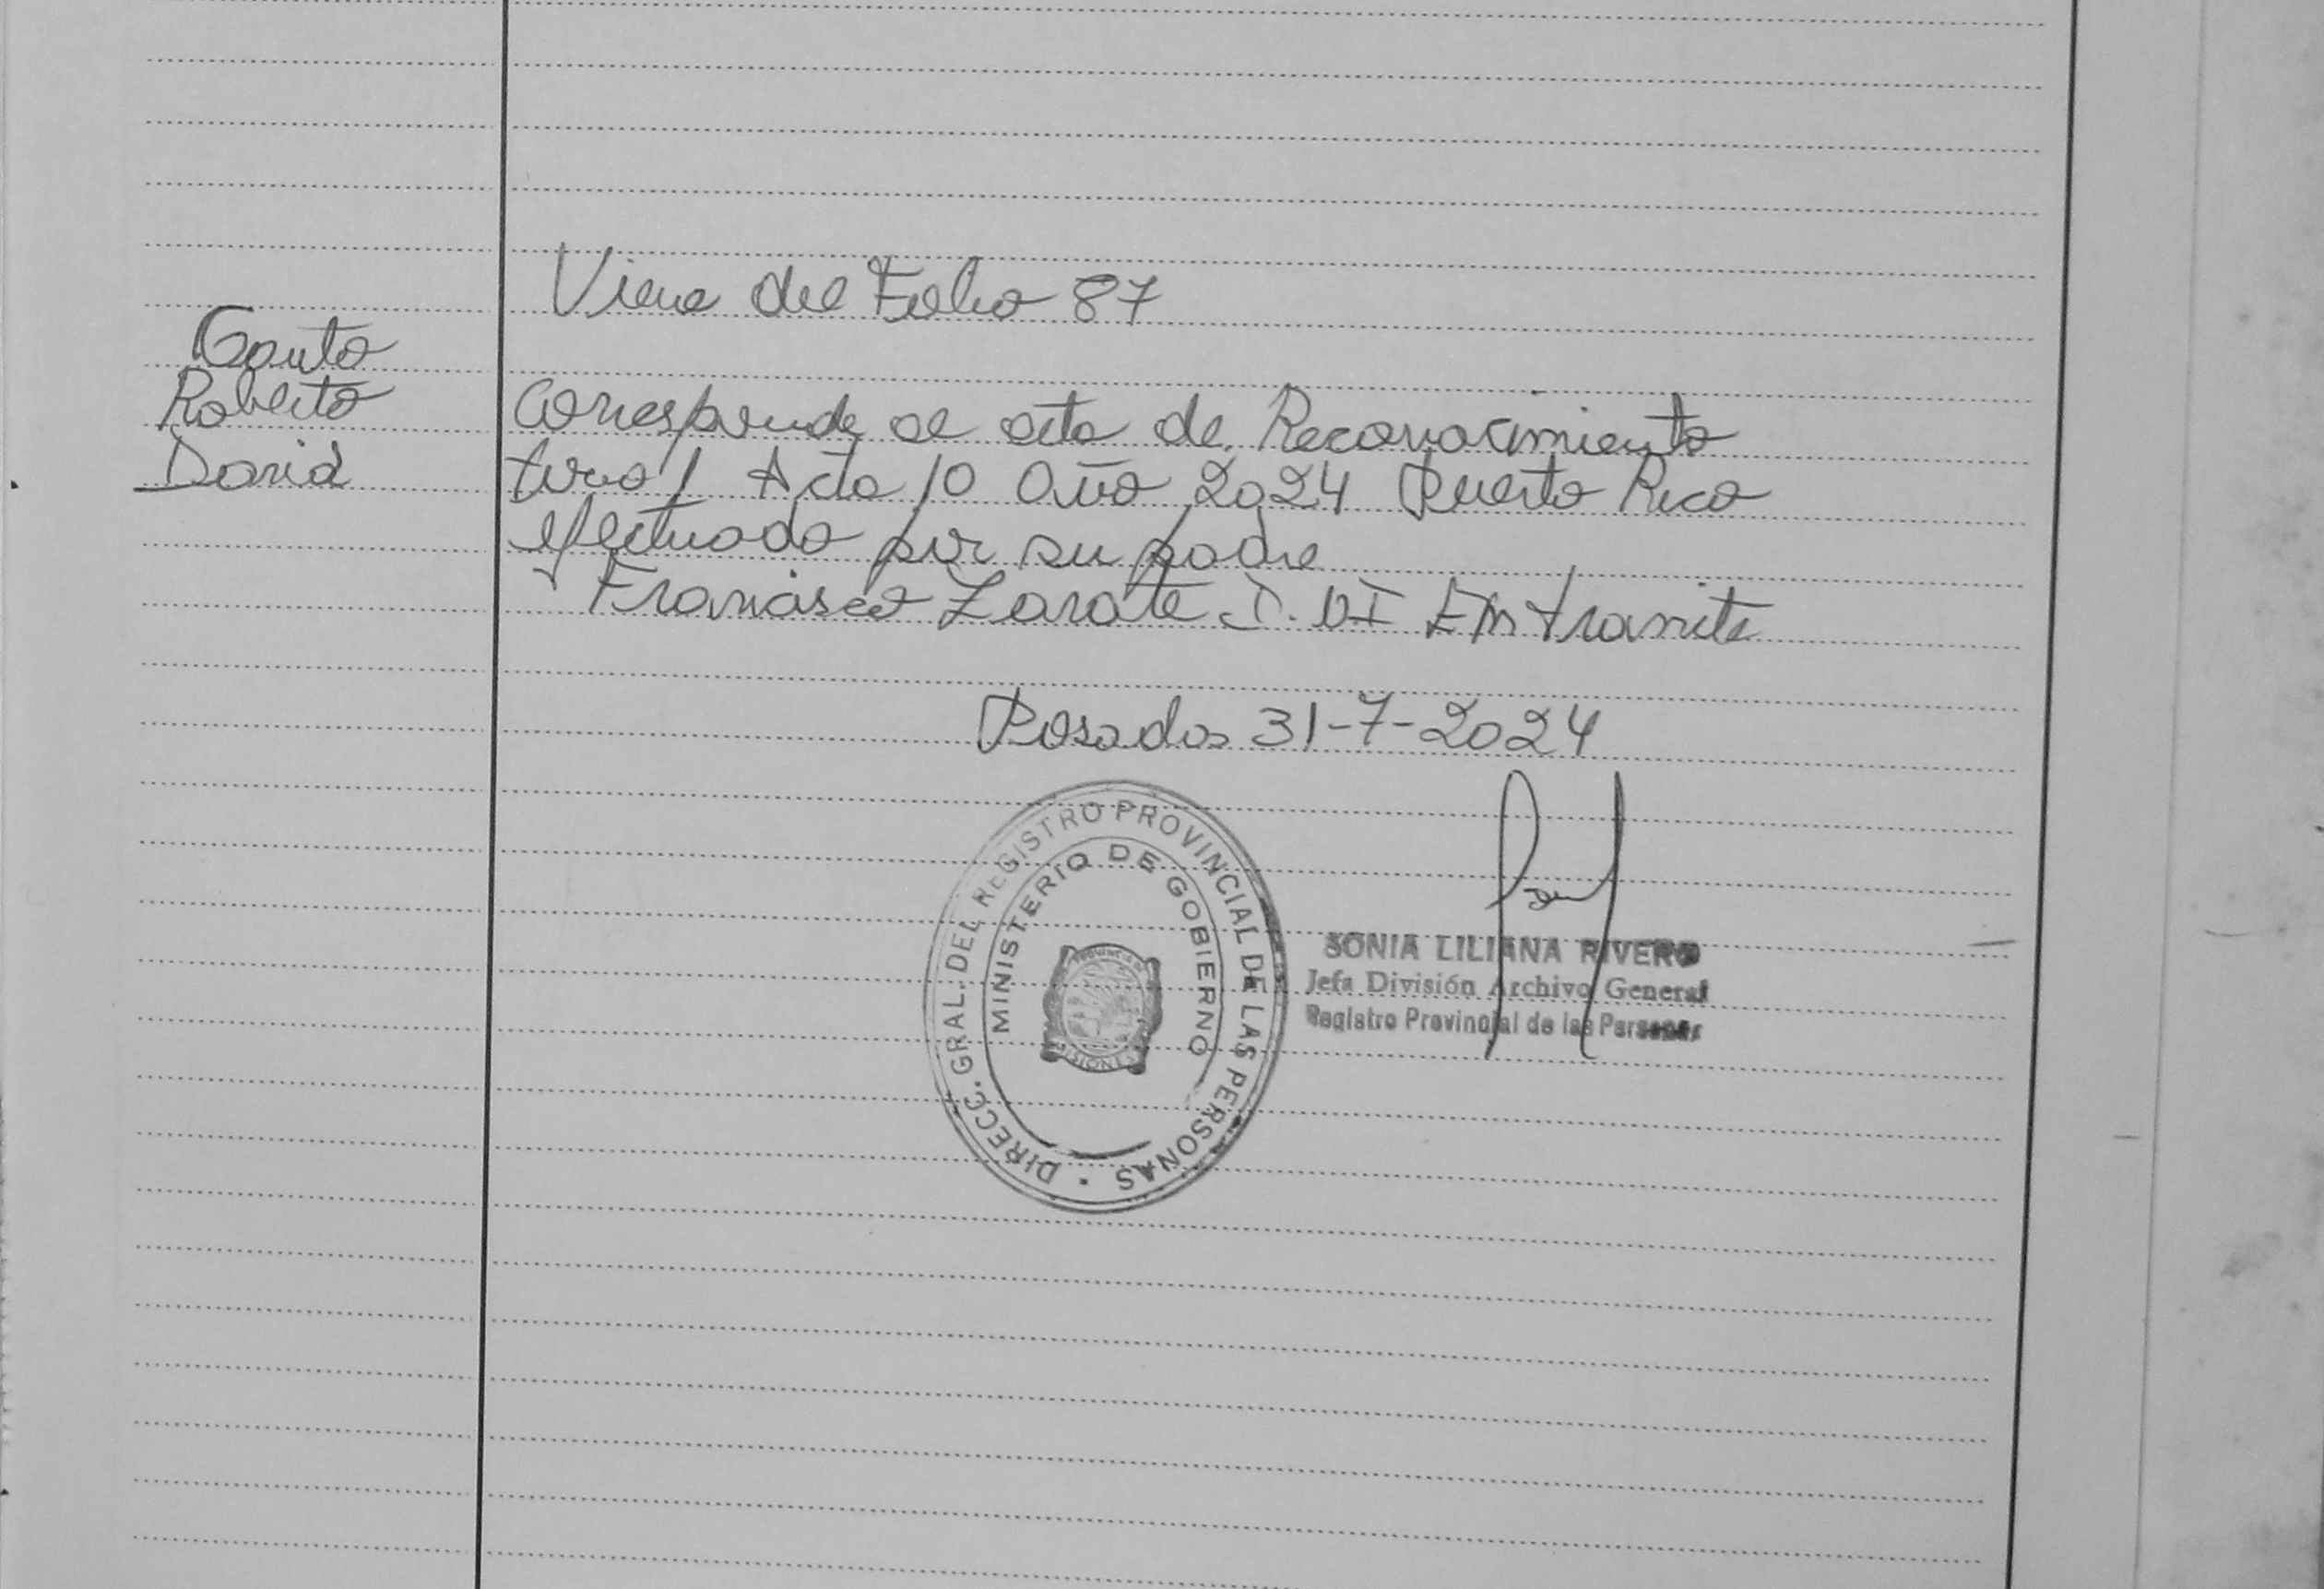 Viene del Folio 87
Couto
Roberto
David
Corresponde al acta de Reconocimiento
tomo 1 Acta 10 Año 2024 Puerto Rico
efectuado por su padre
Francisco Zarate D.NI En tramite
Posadas 31-7-2024
DIRECC. GRAL. DEL REGISTRO PROVINCIAL DE LAS PERSONAS
MINISTERIO DE GOBIERNO
MISIONES
SONIA LILIANA RIVERO
Jefa División Archivo General
Registro Provincial de las Personas